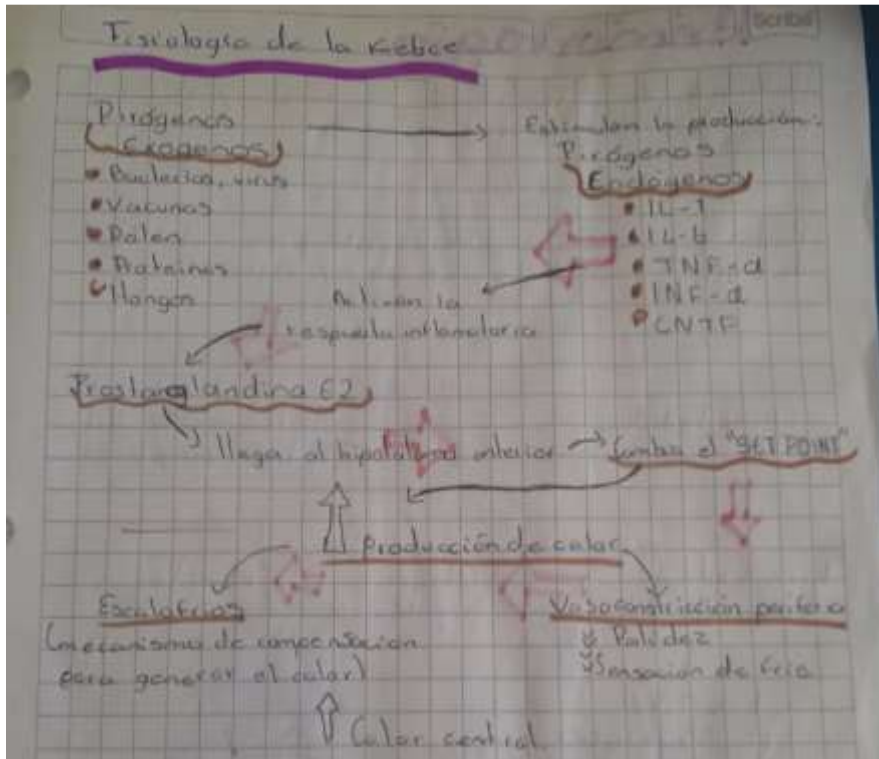 Fisiología de la fiebre
Scribe
Pirógenos
Exógenos
Bacterias, virus
Vacunas
Polen
Proteínas
Hongos
Estimulan la producción:
Pirógenos
Endógenos
IL-1
IL-6
TNF-α
INF-α
CNTF
Activan la
respuesta inflamatoria
Prostanglandina E2
llega al hipotálamo anterior
Cambia el "SET POINT"
Producción de calor
Escalofríos
(mecanismo de compensación
para generar el calor)
Vasoconstricción periférica
Palidez
Sensación de frío
Calor central